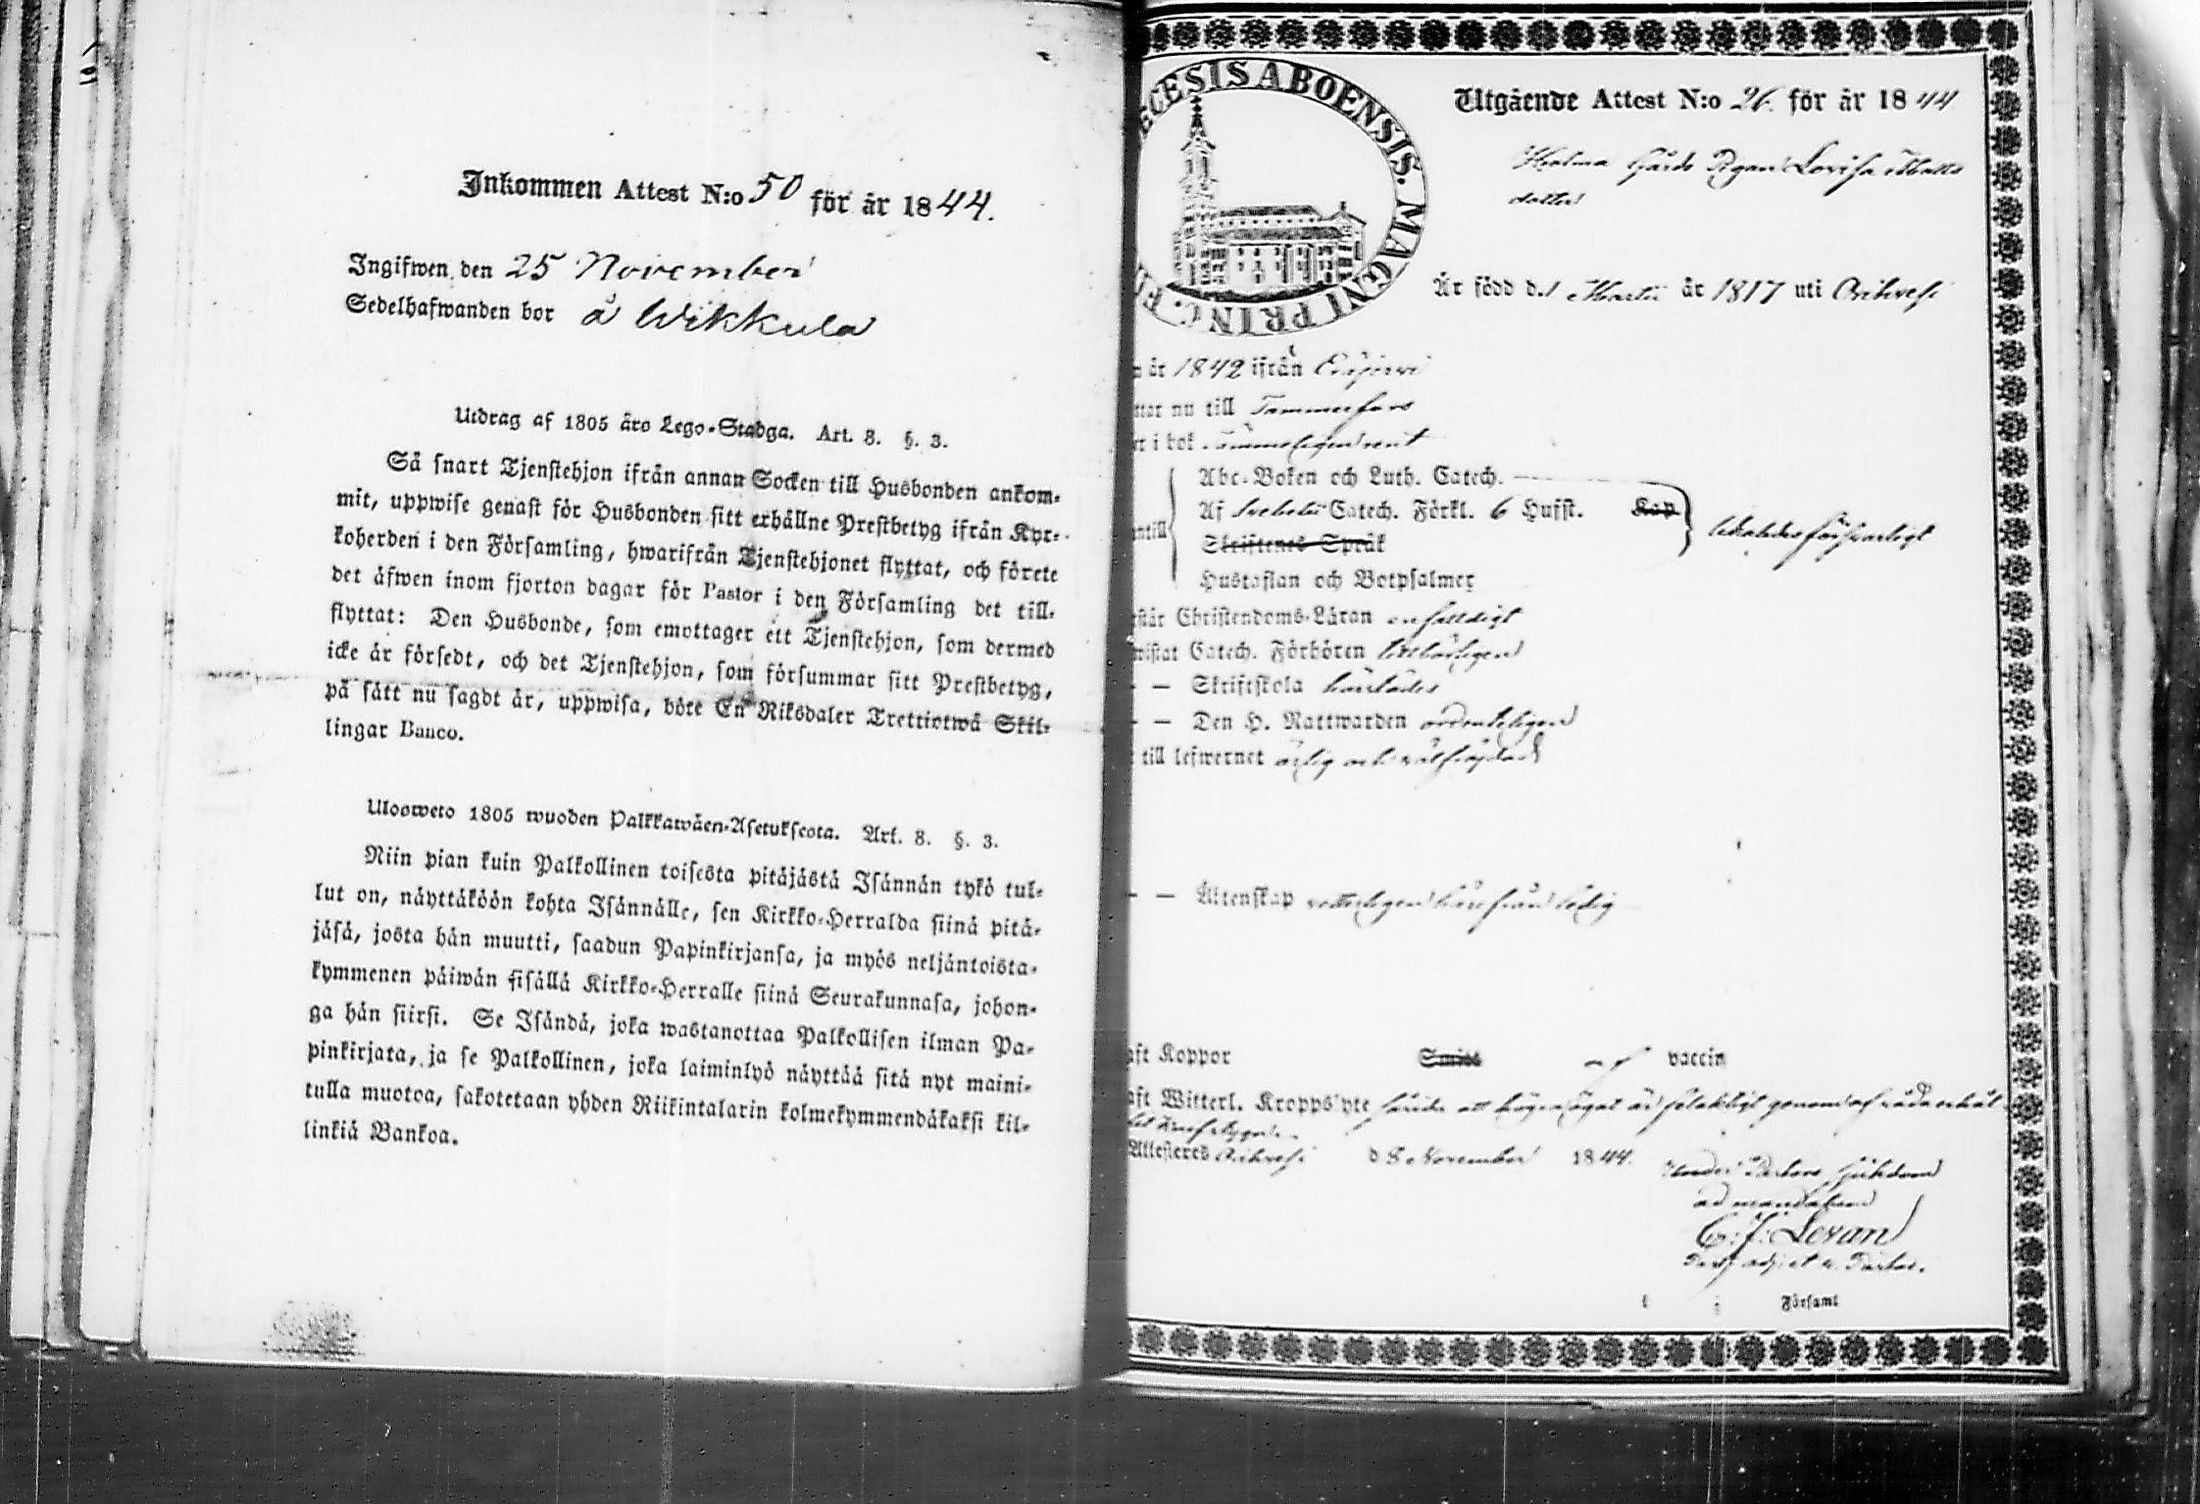 Inkommen Attest N:o 50 för år 1844.
Ingifwen den 25 November
Sedelhafwanden bor å Wikkula
Utdrag af 1805 års Lego-Stadga. Art. 8. §. 3.
Så snart Tjenstehjon ifrån annan Socken till Husbonden ankom-
mit, uppwise genast för Husbonden sitt erhållne Prestbetyg ifrån Kyr-
koherden i den Församling, hwarifrån Tjenstehjonet flyttat, och förete
det äfwen inom fjorton dagar för Pastor i den Församling det till-
flyttat: Den Husbonde, som emottager ett Tjenstehjon, som dermed
icke är försedt, och det Tjenstehjon, som försummar sitt Prestbetyg,
på sätt nu sagdt är, uppwisa, böte En Riksdaler Trettiotwå Skil-
lingar Banco.
Ulosweto 1805 wuoden Palkkawäen-Asetuksesta. Art. 8. §. 3.
Niin pian kuin Palkollinen toisesta pitäjästä Isännän tykö tul-
lut on, näyttäköön kohta Isännälle, sen Kirkko-Herralda siinä pitä-
jäsä, josta hän muutti, saadun Papinkirjansa, ja myös neljäntoista-
kymmenen päiwän sisällä Kirkko-Herralle siinä Seurakunnasa, johon-
ga hän siirsi. Se Isändä, joka wastanottaa Palkollisen ilman Pa-
pinkirjata, ja se Palkollinen, joka laiminlyö näyttää sitä nyt maini-
tulla muotoa, sakotetaan yhden Riikintalarin kolmekymmendäkaksi kil-
linkiä Bankoa.
ECESIS ABOENSIS. MAGNI PRINC. FI
Utgående Attest N:o 26. för år 1844
Gårds Pigan Lovisa Matts
dotter
Är född d. 1 Martii år 1817 uti Orihvesi
år 1842 ifrån
nu till Tammerfors
i bok
Abc-Boken och Luth. Catech.
Af Svebelii Catech. Förkl. 6 Hufst. Kap
Skriftenes Språk
Hustaflan och Botpsalmer
försvarligt
Christendoms-Läran enfaldigt
Catech. Förhören
— Skriftskola
— — Den H. Nattwarden ordenteligen
till lefwernet ärlig och
— — Äktenskap ledig
Koppor Smitt vaccin
Witterl. Kropps'lyte högra ögat är
Attesteras Orihvesi d 8 November 1844.
ad mandatum
C: J: Leran
Församl